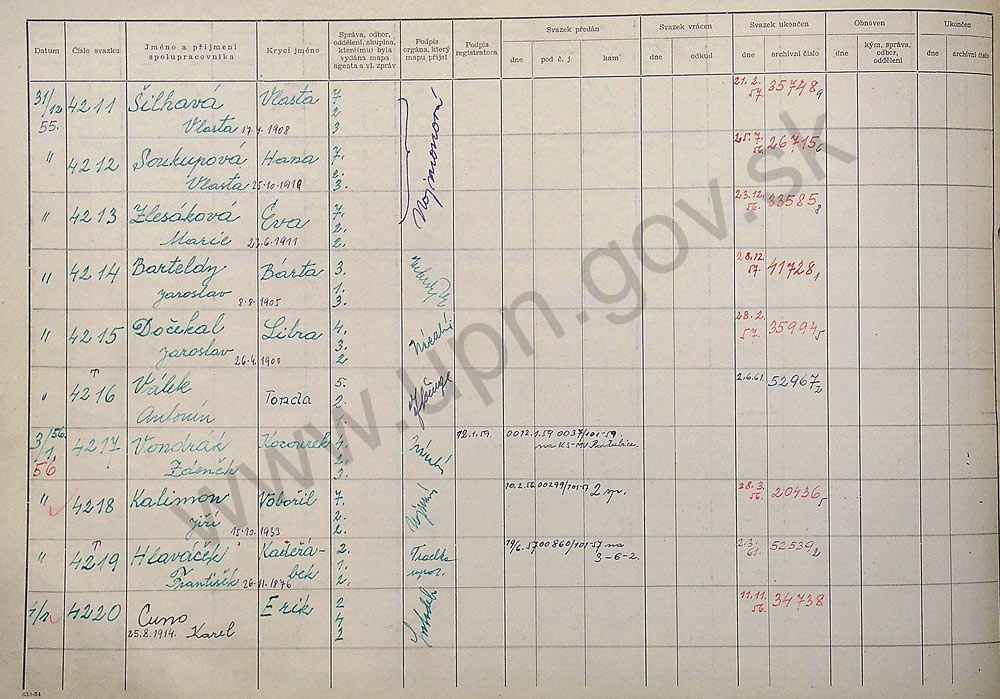 Datum
Číslo svazku
Jméno a příjmení spolupracovníka
Krycí jméno
Správa, odbor, oddělení, skupina, které(mu) byla vydána mapa agenta a vl. zpráv
Podpis orgána, který mapu přijal
Podpis registratora
Svazek předán
dne
pod č. j.
kam
Svazek vrácen
dne
odkud
Svazek ukončen
dne
archivní číslo
Obnoven
dne
kým, správa, odbor, oddělení
Ukončen
dne
archivní číslo
31/12 4211 Šilhavá Vlasta 7. 21. 2. 35748
55. Vlasta 17.4.1908 2 57. 9
3
" 4212 Soukupová Hana 7. 25. 7. 26715
Vlasta 25.10.1919 2. 56. 6
3.
" 4213 Zlesáková Eva 7. 23.12. 33585
Marie 23.6.1911 2. 56. 8
2.
" 4214 Barteldy Bárta 3. 28.12. 41728
Jaroslav 8.8.1905 1. 57. 1
3.
" 4215 Dočekal Libra 4. 28. 2. 35994
Jaroslav 26.4.1900 3. 57. 5
2
" 4216 Válek Tonda 5. 2.6.61. 52967
Antonín 2. 2
3/1. 56. 4217 Vondrák Kocourek 4. 12.1.59. 0037/101-59
56 Zdeněk 2. na KS-MV Pardubice.
3.
" 4218 Kalimon Vobořil 7. 10.2.56 00299/101-57 2 sp. 28. 3. 20436
Jiří 15.10.1933 2. 56. 5
2.
" 4219 Hlaváček Kadeřá- 2. Tradka 19/6.57 00860/101-57 na 2.3. 52539
František 26.VI.1876 bek 1. upoz. 3-6-2. 61. 2
2.
4220 Cuno Erik 2 11.11. 34738
25.8.1914. Karel 4 56.
2
www.upn.gov.sk